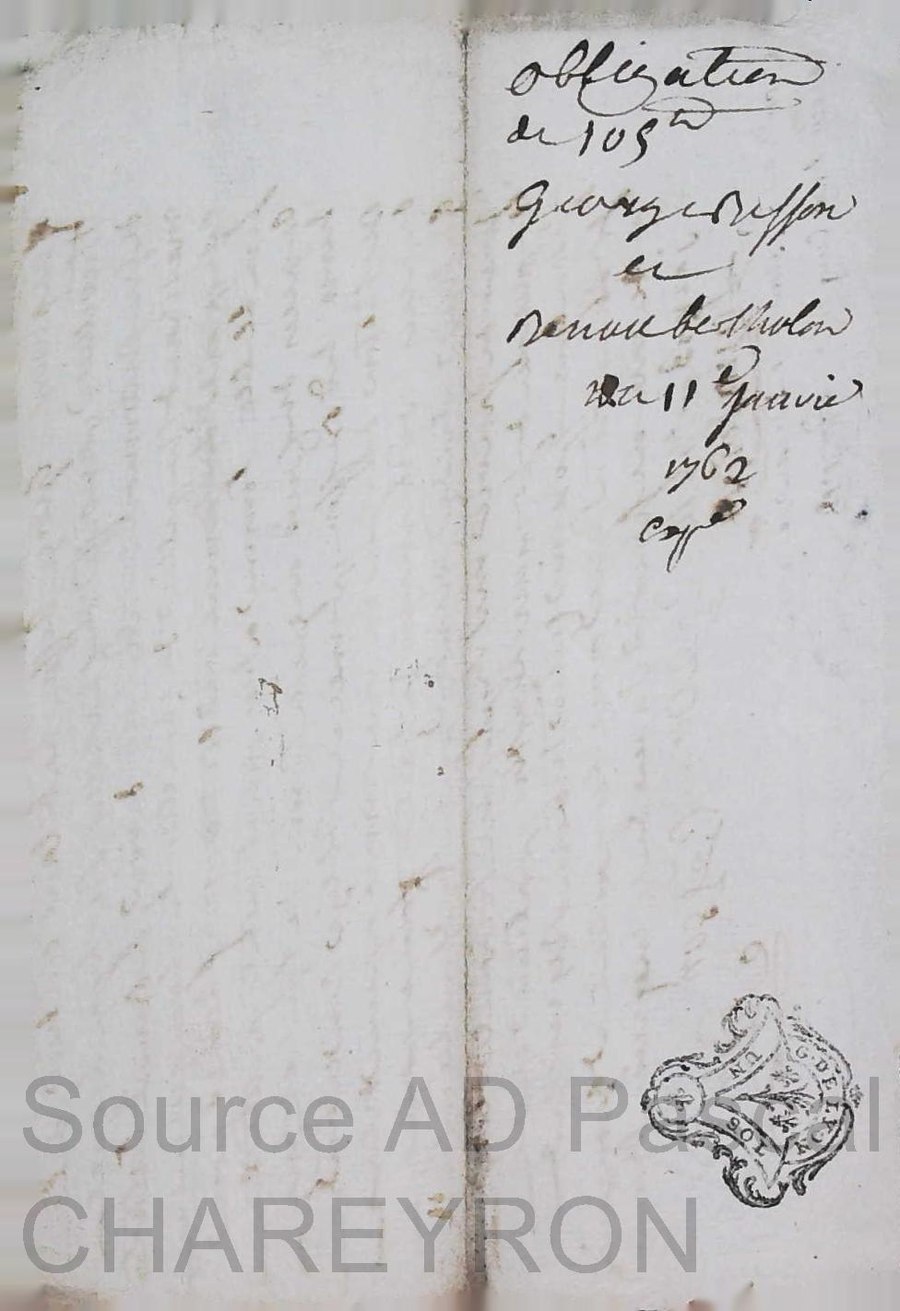 obligation
de 105 ₶
George Busson
et
Benoit bertholon
du 11e Janvie
1762
expe
UN SOL
G. DE LYON
Source AD Pascal
CHAREYRON